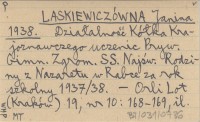 LASKIEWICZÓWNA Janina
1938. Działalność Kółka Kra-
joznawczego uczenic Pryw.
Gimn. Zgrom. SS. Najśw. Rodzi-
ny z Nazaretu w Rabce za rok
szkolny 1937/38. - Orli Lot
(Kraków) 19, nr 10: 168-169, il.
MT